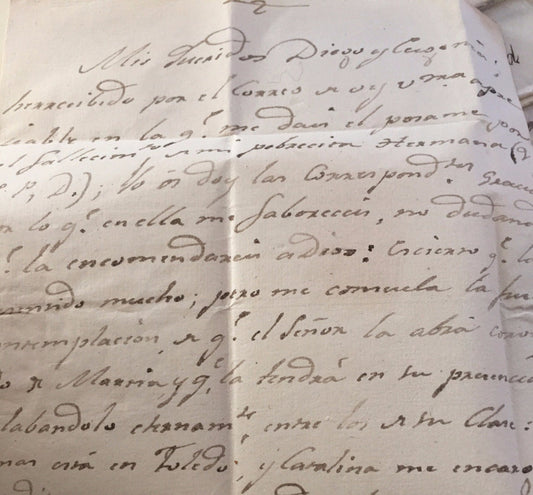 Mis queridos Diego y
he recibido por el Correo de oy vrã apre
ciable en la q.e me dais el pesame por
el fallecim.to de mi pobrecita Hermana (q
e. P. D.); Yo os doy las Correspond.tes Graci
por lo q.e en ella me faboreceis, no dudand
q.e la encomendareis a Dios: Es cierto q.e lo
sentido mucho; pero me consuela la
contemplación de q.e el Señor la abrá coro
do de Maria y q.e la tendrá en su presenci
alabandolo eternam.te entre los de su Clase:
está en Toledo, y Catalina me encar